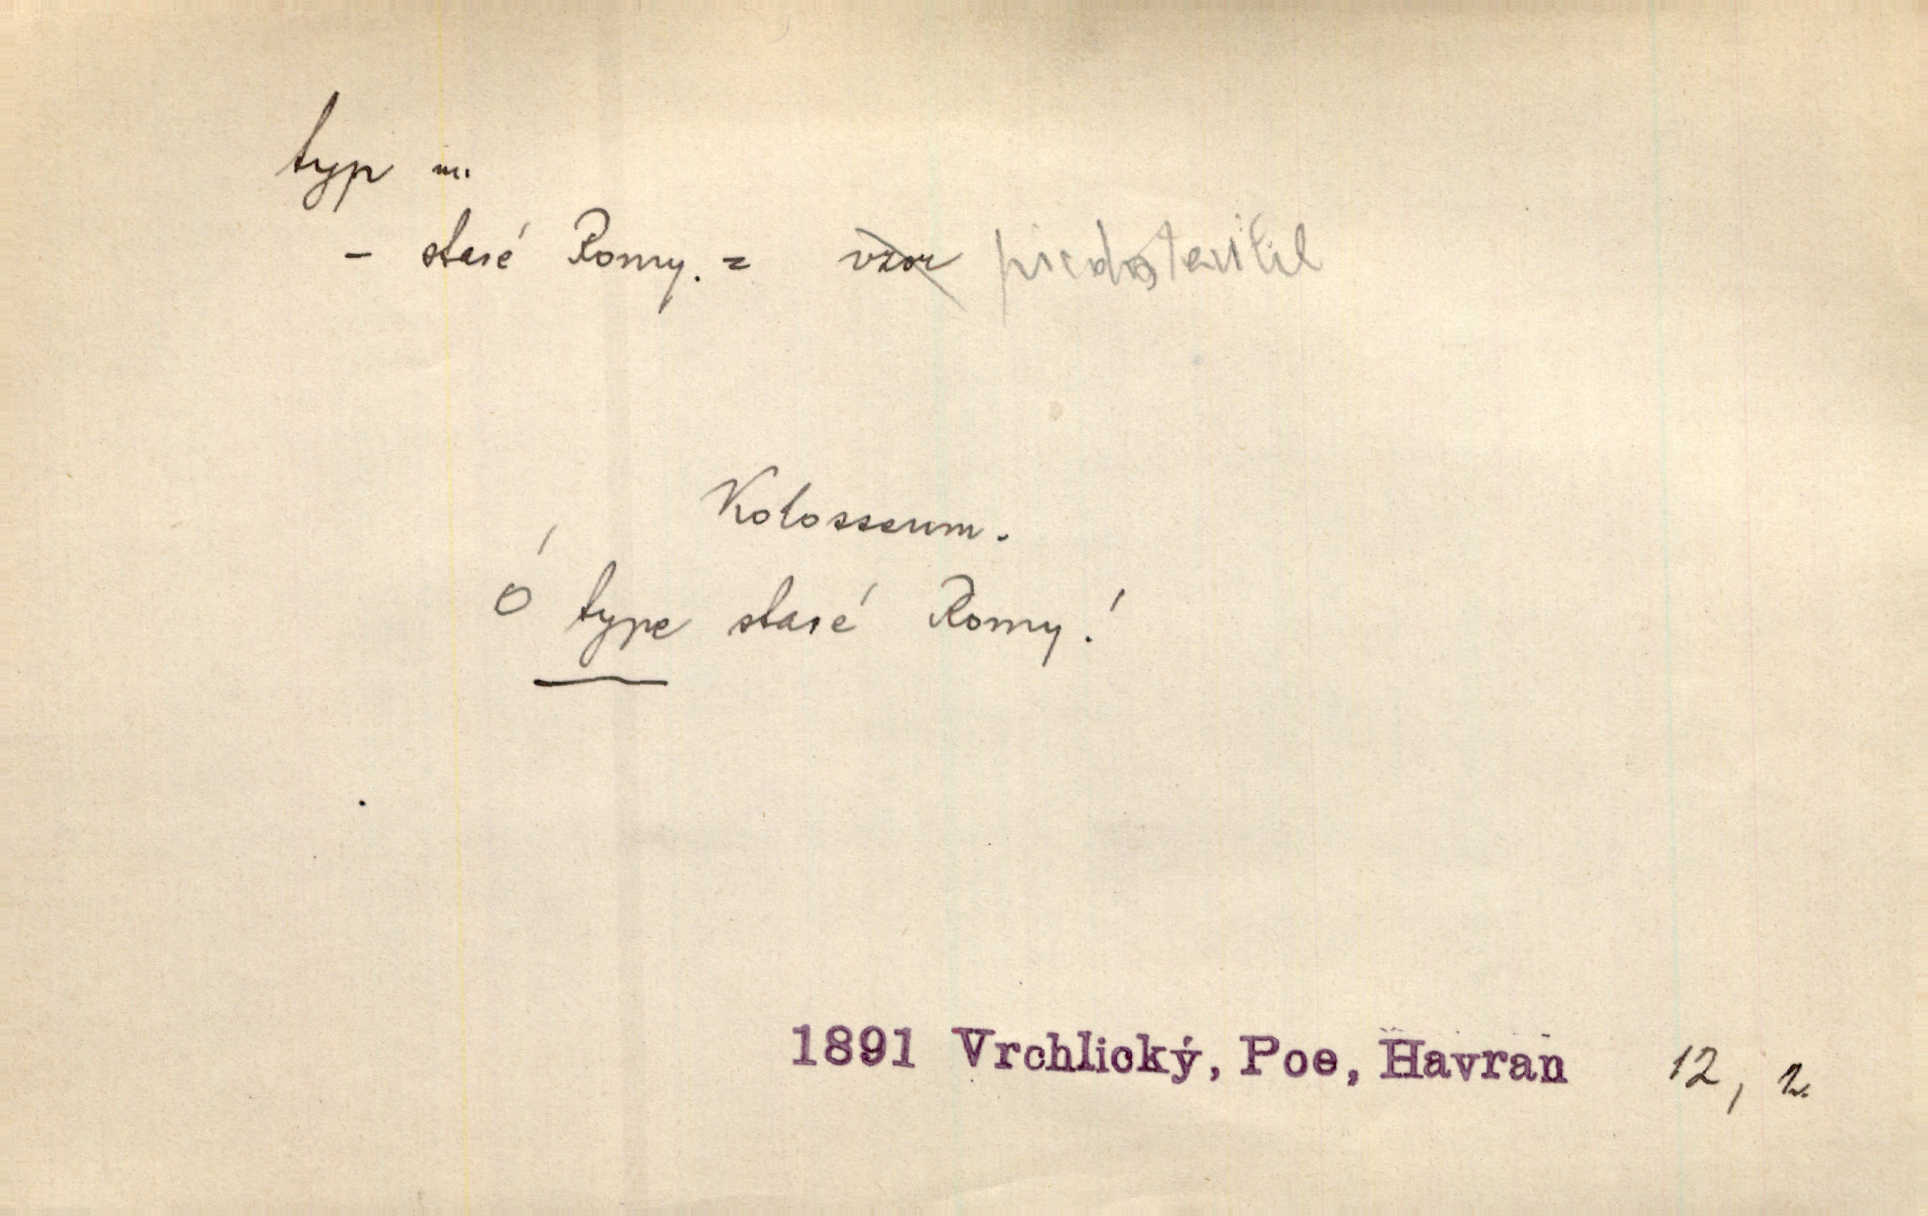 typ m.
- staré Romy. = vzor představitel
Kolosseum.
Ó type staré Romy!
1891 Vrchlický, Poe, Havran 12, 2.